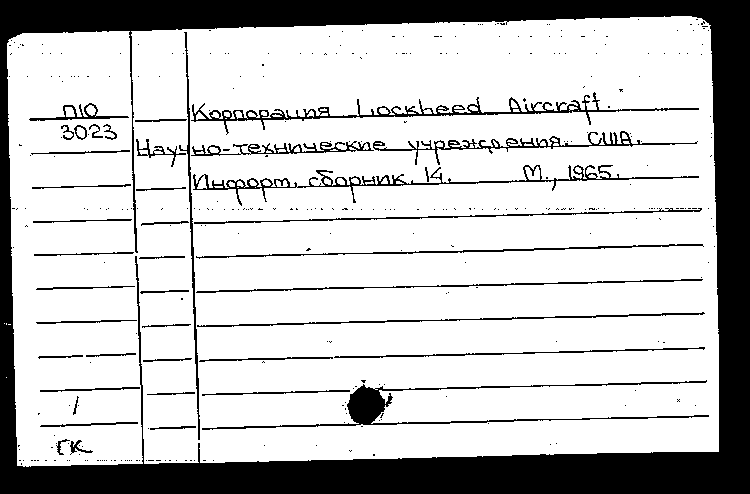 П10 Корпорация Lockheed Aircraft.
3023 Научно-технические учреждения. США.
Информ. сборник. 14. М., 1965.
1
ГК